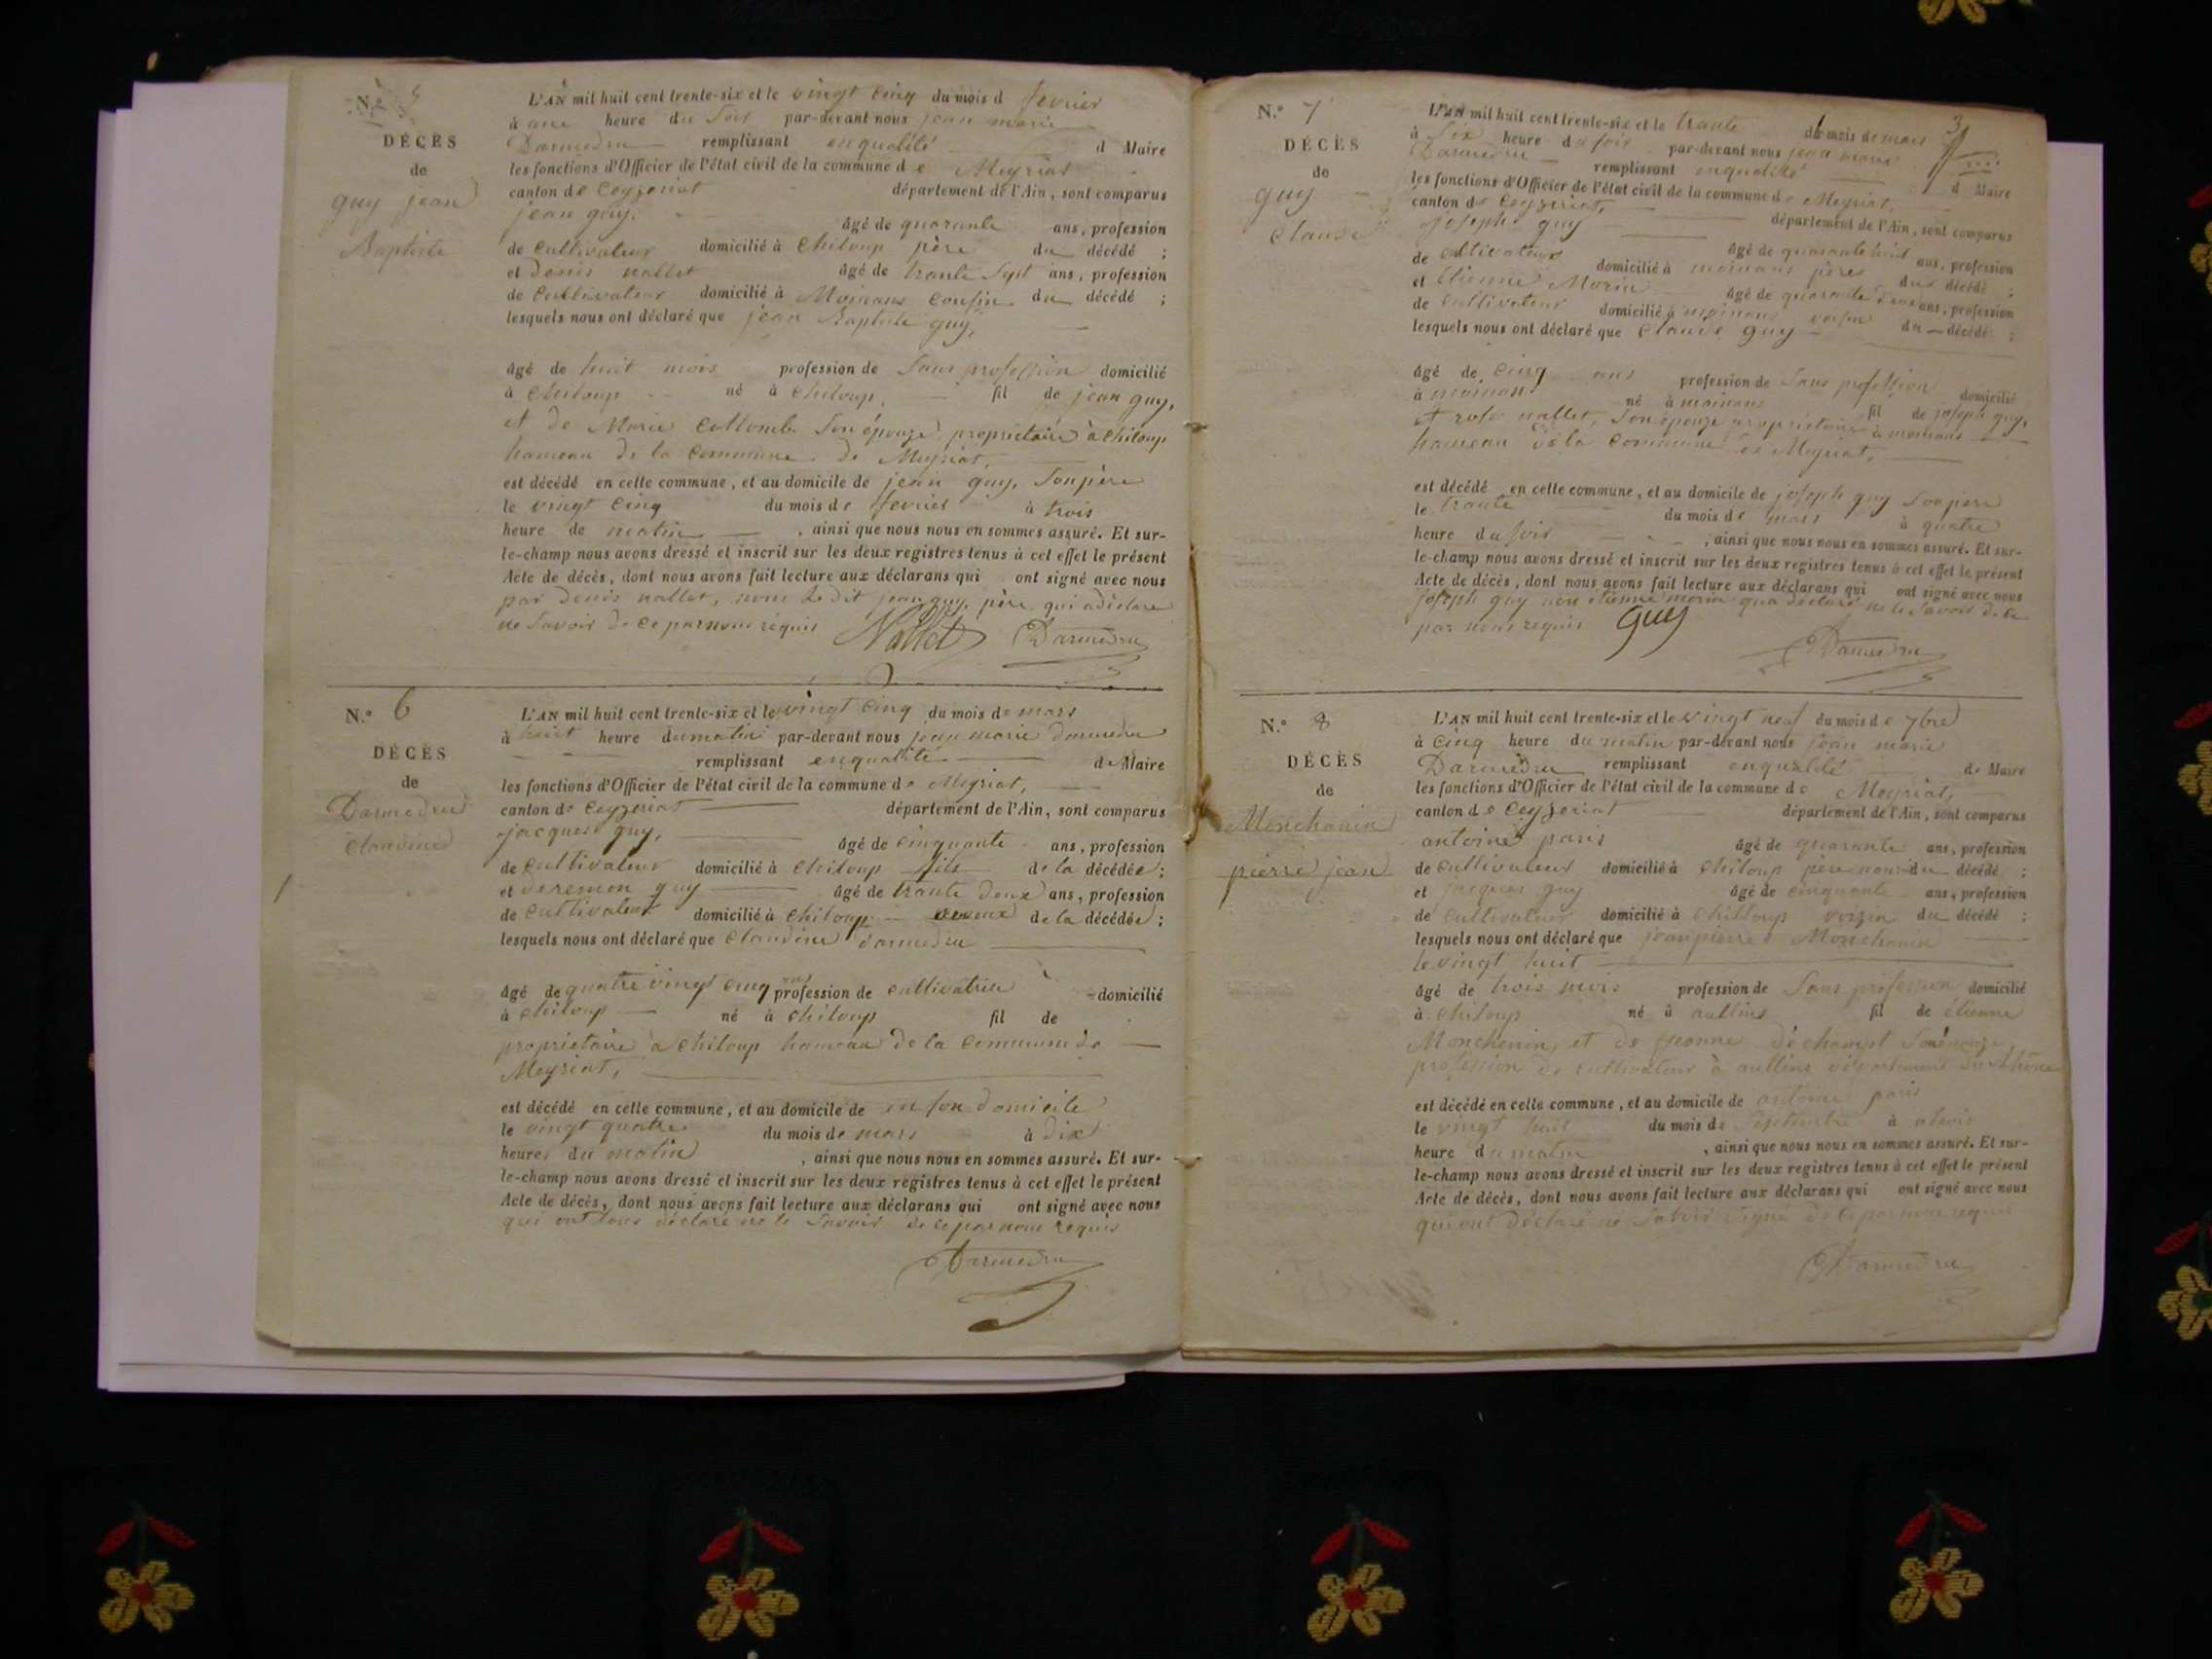 N.º 5
DÉCÈS
de
guy jean
Baptiste
L'AN mil huit cent trente-six et le vingt cinq du mois d fevrier
à une heure du soir par-devant nous jean marie
Darmedru remplissant en qualité d Maire
les fonctions d'Officier de l'état civil de la commune d e Meyriat
canton de Ceyzeriat département de l'Ain, sont comparus
jean guy, âgé de quarante ans, profession
de Cultivateur domicilié à Chiloup père du décédé ;
et denis nallet âgé de trante sept ans, profession
de Cultivateur domicilié à Moinans Cousin du décédé ;
lesquels nous ont déclaré que jean Baptiste guy,
âgé de huit mois profession de Sans profession domicilié
à Chiloup né à Chiloup, fil de jean guy,
et de Marie Collomb Son épouze propriétaire à Chiloup
hameau de la Commune de Meyriat,
est décédé en celle commune, et au domicile de jean guy, Son père
le vingt cinq du mois de fevrier à trois
heure de matin , ainsi que nous nous en sommes assuré. Et sur-
le-champ nous avons dressé et inscrit sur les deux registres tenus à cet effet le présent
Acte de décès, dont nous avons fait lecture aux déclarans qui ont signé avec nous
par denis nallet, non Le dit jean guy, père qui a déclaré
ne Savoir de ce par nous requis Nallet Darmedru
N.º 6
DÉCÈS
de
Darmedru
Claudine
L'AN mil huit cent trente-six et le vingt cinq du mois de mars
à huit heure du matin par-devant nous jean marie darmedru
remplissant en qualité de Maire
les fonctions d'Officier de l'état civil de la commune de Meyriat,
canton de Ceyzeriat département de l'Ain, sont comparus
jacques guy, âgé de cinquante ans, profession
de Cultivateur domicilié à Chiloup fils de la décédée ;
et guy âgé de trante deux ans, profession
de Cultivateur domicilié à Chiloup neveux de la décédée ;
lesquels nous ont déclaré que Claudine darmedru
âgé de quatre vingt cinq ans profession de cultivatrice domicilié
à Chiloup né à Chiloup fil de
propriétaire à Chiloup hameau de la Commune de
Meyriat,
est décédé en celle commune, et au domicile de en son domicile
le vingt quatre du mois de mars à dix
heures du matin , ainsi que nous nous en sommes assuré. Et sur-
le-champ nous avons dressé et inscrit sur les deux registres tenus à cet effet le présent
Acte de décès, dont nous avons fait lecture aux déclarans qui ont signé avec nous
qui ont tous déclaré ne le Savoir de ce par nous requis
Darmedru
3
N.º 7
DÉCÈS
de
guy
Claude
L'AN mil huit cent trente-six et le trante du mois de mars
à Six heure du soir par-devant nous jean marie
Darmedru remplissant en qualité d Maire
les fonctions d'Officier de l'état civil de la commune de Meyriat,
canton de Ceyzeriat, département de l'Ain, sont comparus
joseph guy âgé de quarante huit ans, profession
de cultivateur domicilié à moinans père du décédé ;
et Etienne Morin âgé de quarante deux ans, profession
de Cultivateur domicilié à moinans voisin du décédé ;
lesquels nous ont déclaré que Claude guy
âgé de Cinq ans profession de Sans profession domicilié
à moinans né à moinans fil de joseph guy,
et rose nallet, Son épouze propriétaire à moinans
hameau de la Commune de Meyriat,
est décédé en celle commune, et au domicile de joseph guy Son père
le trante du mois de mars à quatre
heure du soir , ainsi que nous nous en sommes assuré. Et sur-
le-champ nous avons dressé et inscrit sur les deux registres tenus à cet effet le présent
Acte de décès, dont nous avons fait lecture aux déclarans qui ont signé avec nous
joseph guy non étienne morin qui a déclaré ne le Savoir de ce
par nous requis Guy
Darmedru
N.º 8
DÉCÈS
de
Monchanin
pierre jean
L'AN mil huit cent trente-six et le vingt neuf du mois de 7bre
à cinq heure du matin par-devant nous jean marie
Darmedru remplissant en qualité de Maire
les fonctions d'Officier de l'état civil de la commune de Meyriat,
canton de Ceyzeriat département de l'Ain, sont comparus
antoine paris âgé de quarante ans, profession
de cultivateur domicilié à Chiloup père du décédé ;
et jacques guy âgé de cinquante ans, profession
de cultivateur domicilié à Chilloup voizin du décédé ;
lesquels nous ont déclaré que jean pierre Monchanin
le vingt huit
âgé de trois mois profession de Sans profession domicilié
à Chiloup né à aullins fil de étienne
Monchenin, et de jeanne déchampt Son épouze
profession de cultivateur à aullins département du Rhône
est décédé en celle commune, et au domicile de antoine paris
le vingt huit du mois de Septembre à
heure du matin , ainsi que nous nous en sommes assuré. Et sur-
le-champ nous avons dressé et inscrit sur les deux registres tenus à cet effet le présent
Acte de décès, dont nous avons fait lecture aux déclarans qui ont signé avec nous
qui ont déclaré ne Savoir signé de ce par nous requis
Darmedru